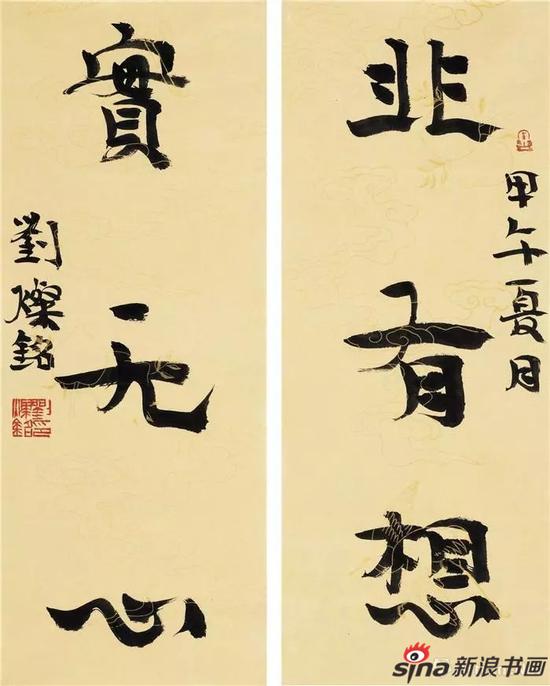 非有想
甲午夏月
實无心
劉燦銘
sina新浪书画